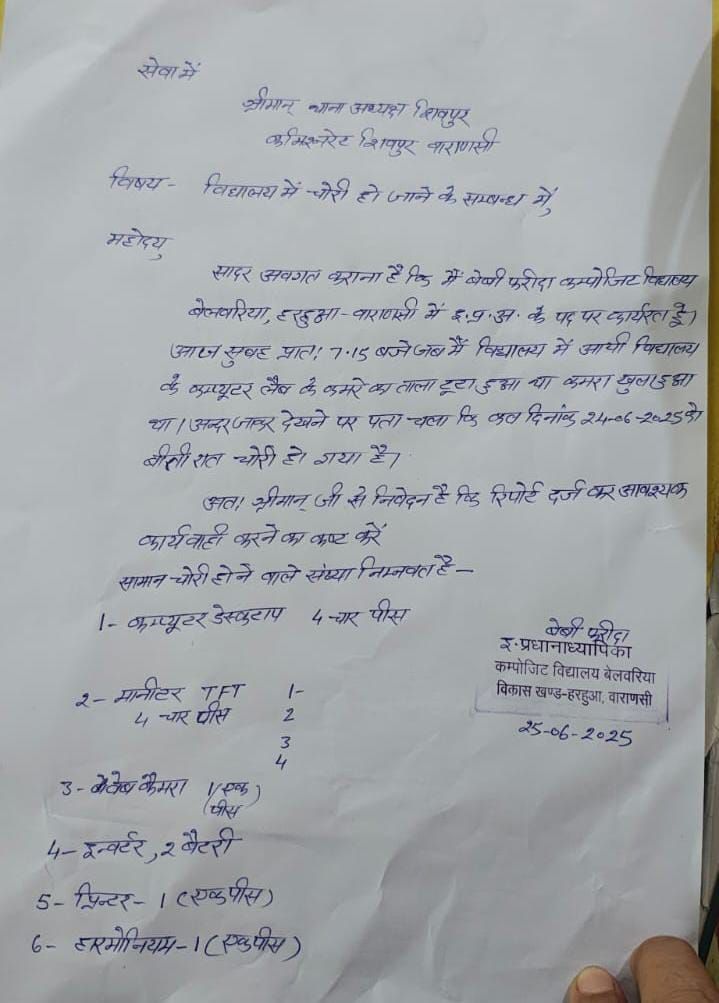 सेवा में
श्रीमान् थाना अध्यक्ष शिवपुर
कमिश्नरेट शिवपुर वाराणसी
विषय - विद्यालय में चोरी हो जाने के सम्बन्ध में,
महोदय,
सादर अवगत कराना है कि मैं बेबी फरीदा कम्पोजिट विद्यालय
बेलवरिया, हरहुआ-वाराणसी में इ.प्र.अ. के पद पर कार्यरत हूँ।
आज सुबह प्रातः 7.15 बजे जब मैं विद्यालय में आयी विद्यालय
के कम्प्यूटर लैब के कमरे का ताला टूटा हुआ था कमरा खुला हुआ
था। अन्दर जाकर देखने पर पता चला कि कल दिनांक 24-06-2025 को
बीती रात चोरी हो गया है।
अतः श्रीमान् जी से निवेदन है कि रिपोर्ट दर्ज कर आवश्यक
कार्यवाही करने का कष्ट करें
सामान चोरी होने वाले संख्या निम्नवत है –
1- कम्प्यूटर डेस्कटाप 4 चार पीस
बेबी फरीदा
इ.प्रधानाध्यापिका
कम्पोजिट विद्यालय बेलवरिया
विकास खण्ड-हरहुआ, वाराणसी
25-06-2025
2- मानीटर TFT 1-
4 चार पीस 2
3
4
3- वेब कैमरा 1(एक)
(पीस)
4- इन्वर्टर, 2 बैटरी
5- प्रिन्टर- 1 (एक पीस)
6- हारमोनियम-1 (एक पीस)